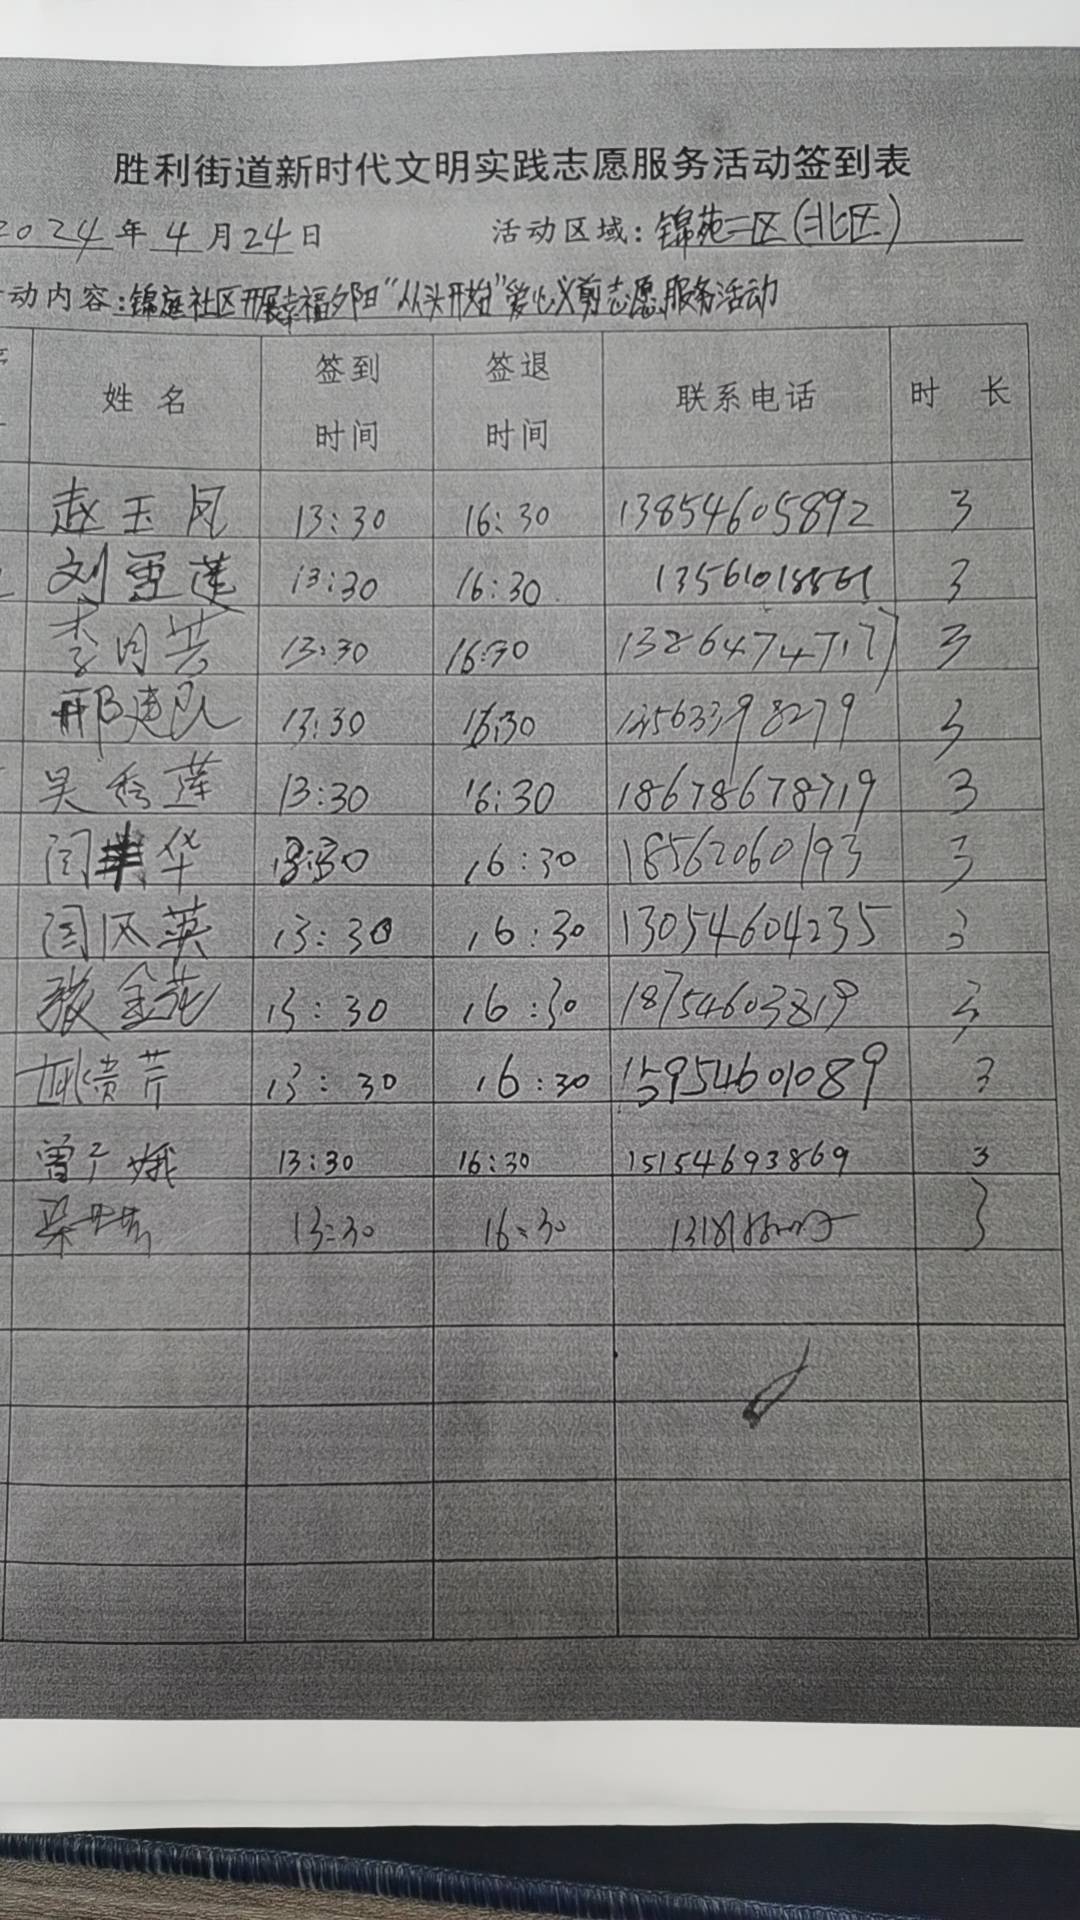 胜利街道新时代文明实践志愿服务活动签到表
2024年4月24日 活动区域：锦苑二区（北区）
动内容：锦庭社区开展幸福夕阳“从头开始”爱心义剪志愿服务活动
姓名 签到时间 签退时间 联系电话 时长
赵玉凤 13:30 16:30 13854605892 3
刘雪莲 13:30 16:30 3
李月芳 13:30 16:30 3
邢建队 13:30 16:30 13563398279 3
吴秀莲 13:30 16:30 18678678719 3
闫华 13:30 16:30 18562060193 3
闫风英 13:30 16:30 13054604235 3
张金花 13:30 16:30 18754603819 3
姚贵芹 13:30 16:30 15954601089 3
曾广娥 13:30 16:30 15154693869 3
13:30 16:30 3